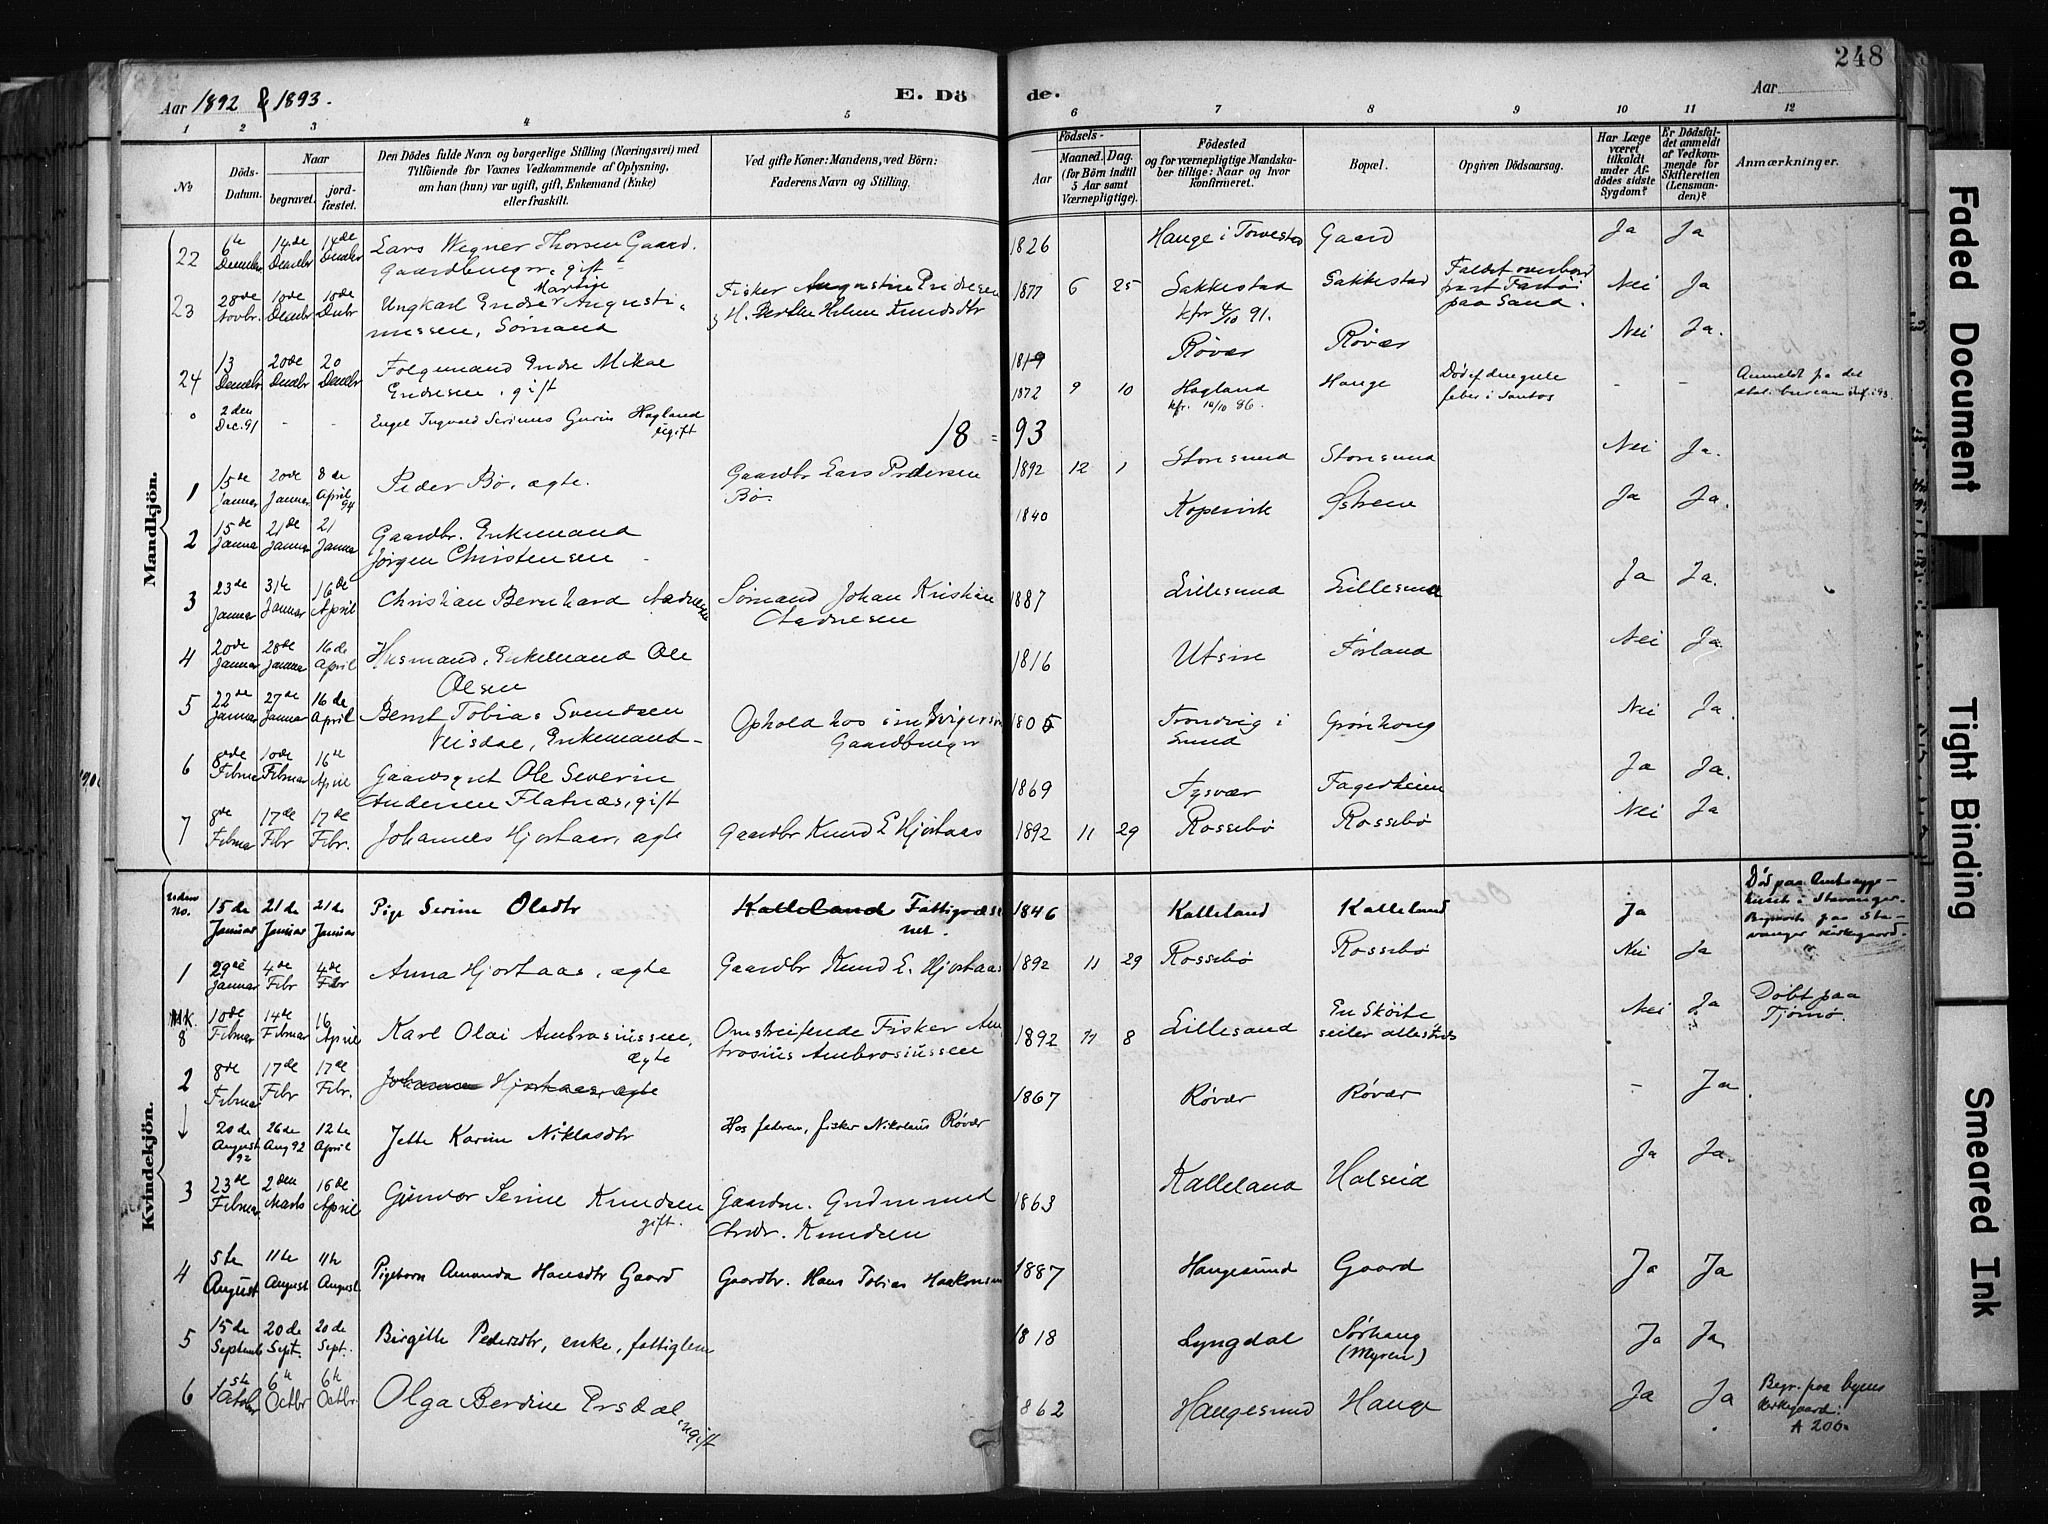 248
Aar 1892 & 1893.
E. Dö de.
Aar
1 2 3 4 5 6 7 8 9 10 11 12
No
Döds-Datum.
Naar
begravet.
jord-fæstet.
Den Dödes fulde Navn og borgerlige Stilling (Næringsvei) med
Tilföiende for Voxnes Vedkommende af Oplysning,
om han (hun) var ugift, gift, Enkemand (Enke)
eller fraskilt.
Ved gifte Koner: Mandens, ved Börn:
Faderens Navn og Stilling.
Födsels-
Aar
Maaned. Dag.
(for Börn indtil
5 Aar samt
Værnepligtige).
Födested
og for værnepligtige Mandska-
ber tillige: Naar og hvor
konfirmeret.
Bopæl.
Opgiven Dödsaarsag.
Har Læge
været
tilkaldt
under Af-
dödes sidste
Sygdom?
Er Dödsfal-
det anmeldt
af Vedkom-
mende for
Skifteretten
(Lensman-
den)?
Anmærkninger.
Mandkjön.
22 6te Decembr 14de Decembr 14de Decbr Lars Wegner Thorsen Gaard, 1826 Hauge i Torvestad Gaard Ja Ja
Gaardbruger, gift
23 28de Novbr. 10de Decembr 10de Decbr Ungkarl Endre Martin Augusti- Fisker Augustin Endresen 1877 6 25 Sakkestad Sakkestad Faldet overbord Nei Ja
nussen, Sømand Helene Knudsdtr kfr 4/10 91. paa Sand.
24 13 Decembr 20de Decbr 20 Decembr Endre Mikal 18 Røvær Røvær Nei Ja.
Endresen, gift
2den Dec. 91 - - Engel Ingvald Serinus Gurin Hagland ugift 1872 9 10 Hagland Hauge Død af den gule - - Anmeldt fra det
kfr. 10/10 86. feber i Santos stat. bureau
18 = 93
1 15de Januar 20de Januar 8de April 94 Peder Bø, ægte. Gaardbr Lars Pedersen 1892 12 1 Storesund Storesund Nei Ja.
Bø
2 15de Januar 21de Januar 21 Januar Gaardbr. Enkemand 1840 Kopervik Østrem Ja Ja.
Jørgen Christensen
3 23de Januar 31te Januar 16de April Christian Bernhard Aadnesen Sømand Johan Kristian 1887 Lillesund Lillesund Ja Ja.
Aadnesen
4 20de Januar 28de Januar 16de April Husmand, Enkemand Ole 1816 Utsire Førland Nei Ja.
Olsen
5 22de Januar 27de Januar 16de April Bernt Tobias Svendsen Ophold hos sin Svigersøn 1805 Trondvig i Grønhoug Nei Ja.
Veisdal, Enkemand Gaardbruger Sund
6 8de Februar 10de Februar 16de April Gaardsgut Ole Severin 1869 Tysvær Fagerheim Ja Ja.
Andersen Flatnæs, gift
7 8de Februar 17de Febr 17de Febr. Johannes Hjortaas, ægte Gaardbr Knud E Hjortaas 1892 11 29 Rossebø Rossebø Nei Ja
Kvindekjön.
uden No. 15de Januar 21de Januar 21de Januar Pige Serine Olsdtr Kalleland Fattigvæse- 1846 Kalleland Kalleland Ja Død paa Amtssyge-
net. huset i Stavanger.
Begravet paa Sta-
vanger Kirkegaard.
1 29de Januar 4de Febr 4de Febr Anna Hjortaas, ægte Gaardbr Knud E. Hjortaas 1892 11 29 Rossebø Rossebø Nei Ja
M.K. 8 10de Februar 14de Februar 16 April Karl Olai Ambrosiussen, Omstreifende Fisker Am- 1892 8 Lillesand En Skøite Nei Ja Døbt paa
ægte brosius Ambrosiussen seiler allesteds Tjømø.
2 8de Februar 17de Febr 17de Febr. Johannes Hjortaas, ægte
20de August 92 26de Aug 92 12te April Jette Karine Niklasdtr Hos faderen, fisker Nikolaus Røvær 1867 Røvær Røvær - Ja
3 23de Februar 2den Marts 16de April Gunvor Serine Knudsen Gaardm. Gudmund 1863 Kalleland Halseid Ja Ja.
gift. Andr. Knudsen
4 5te August 11te August 11te August Pigebarn Amanda Hansdtr Gaard Gaardbr. Hans Tobias Haakonsen 1887 Haugesund Gaard Ja Ja
5 15de Septembr 20de Sept. 20de Sept. Birgitte Pedersdtr, enke, fattiglem 1818 Lyngdal Sørhaug Ja Ja
(Myren)
6 1ste October 6te Octbr 6te Octbr. Olga Berdine Ersdal, ugift 1862 Haugesund Hauge Ja Ja Begr. paa byens
Kirkegaard:
A 206.
Faded Document
Tight Binding
Smeared Ink